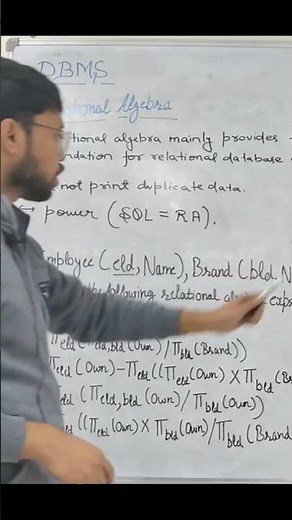 DBMS
Relational Algebra
tional algebra mainly provides
ndation for relational database
not print duplicate data.
→ power (SQL = RA).
Employee (eId, Name), Brand (bId, N
the following relational exp
Π eId (eId, bId (Own) / Π bId (Brand))
Π eId (Own) − Π eId ((Π eId (Own) × Π bId (B
eId (Π eId, bId (Own) / Π bId (Own))
eId ((Π eId (Own) × Π bId (Own) / Π bId (Brand